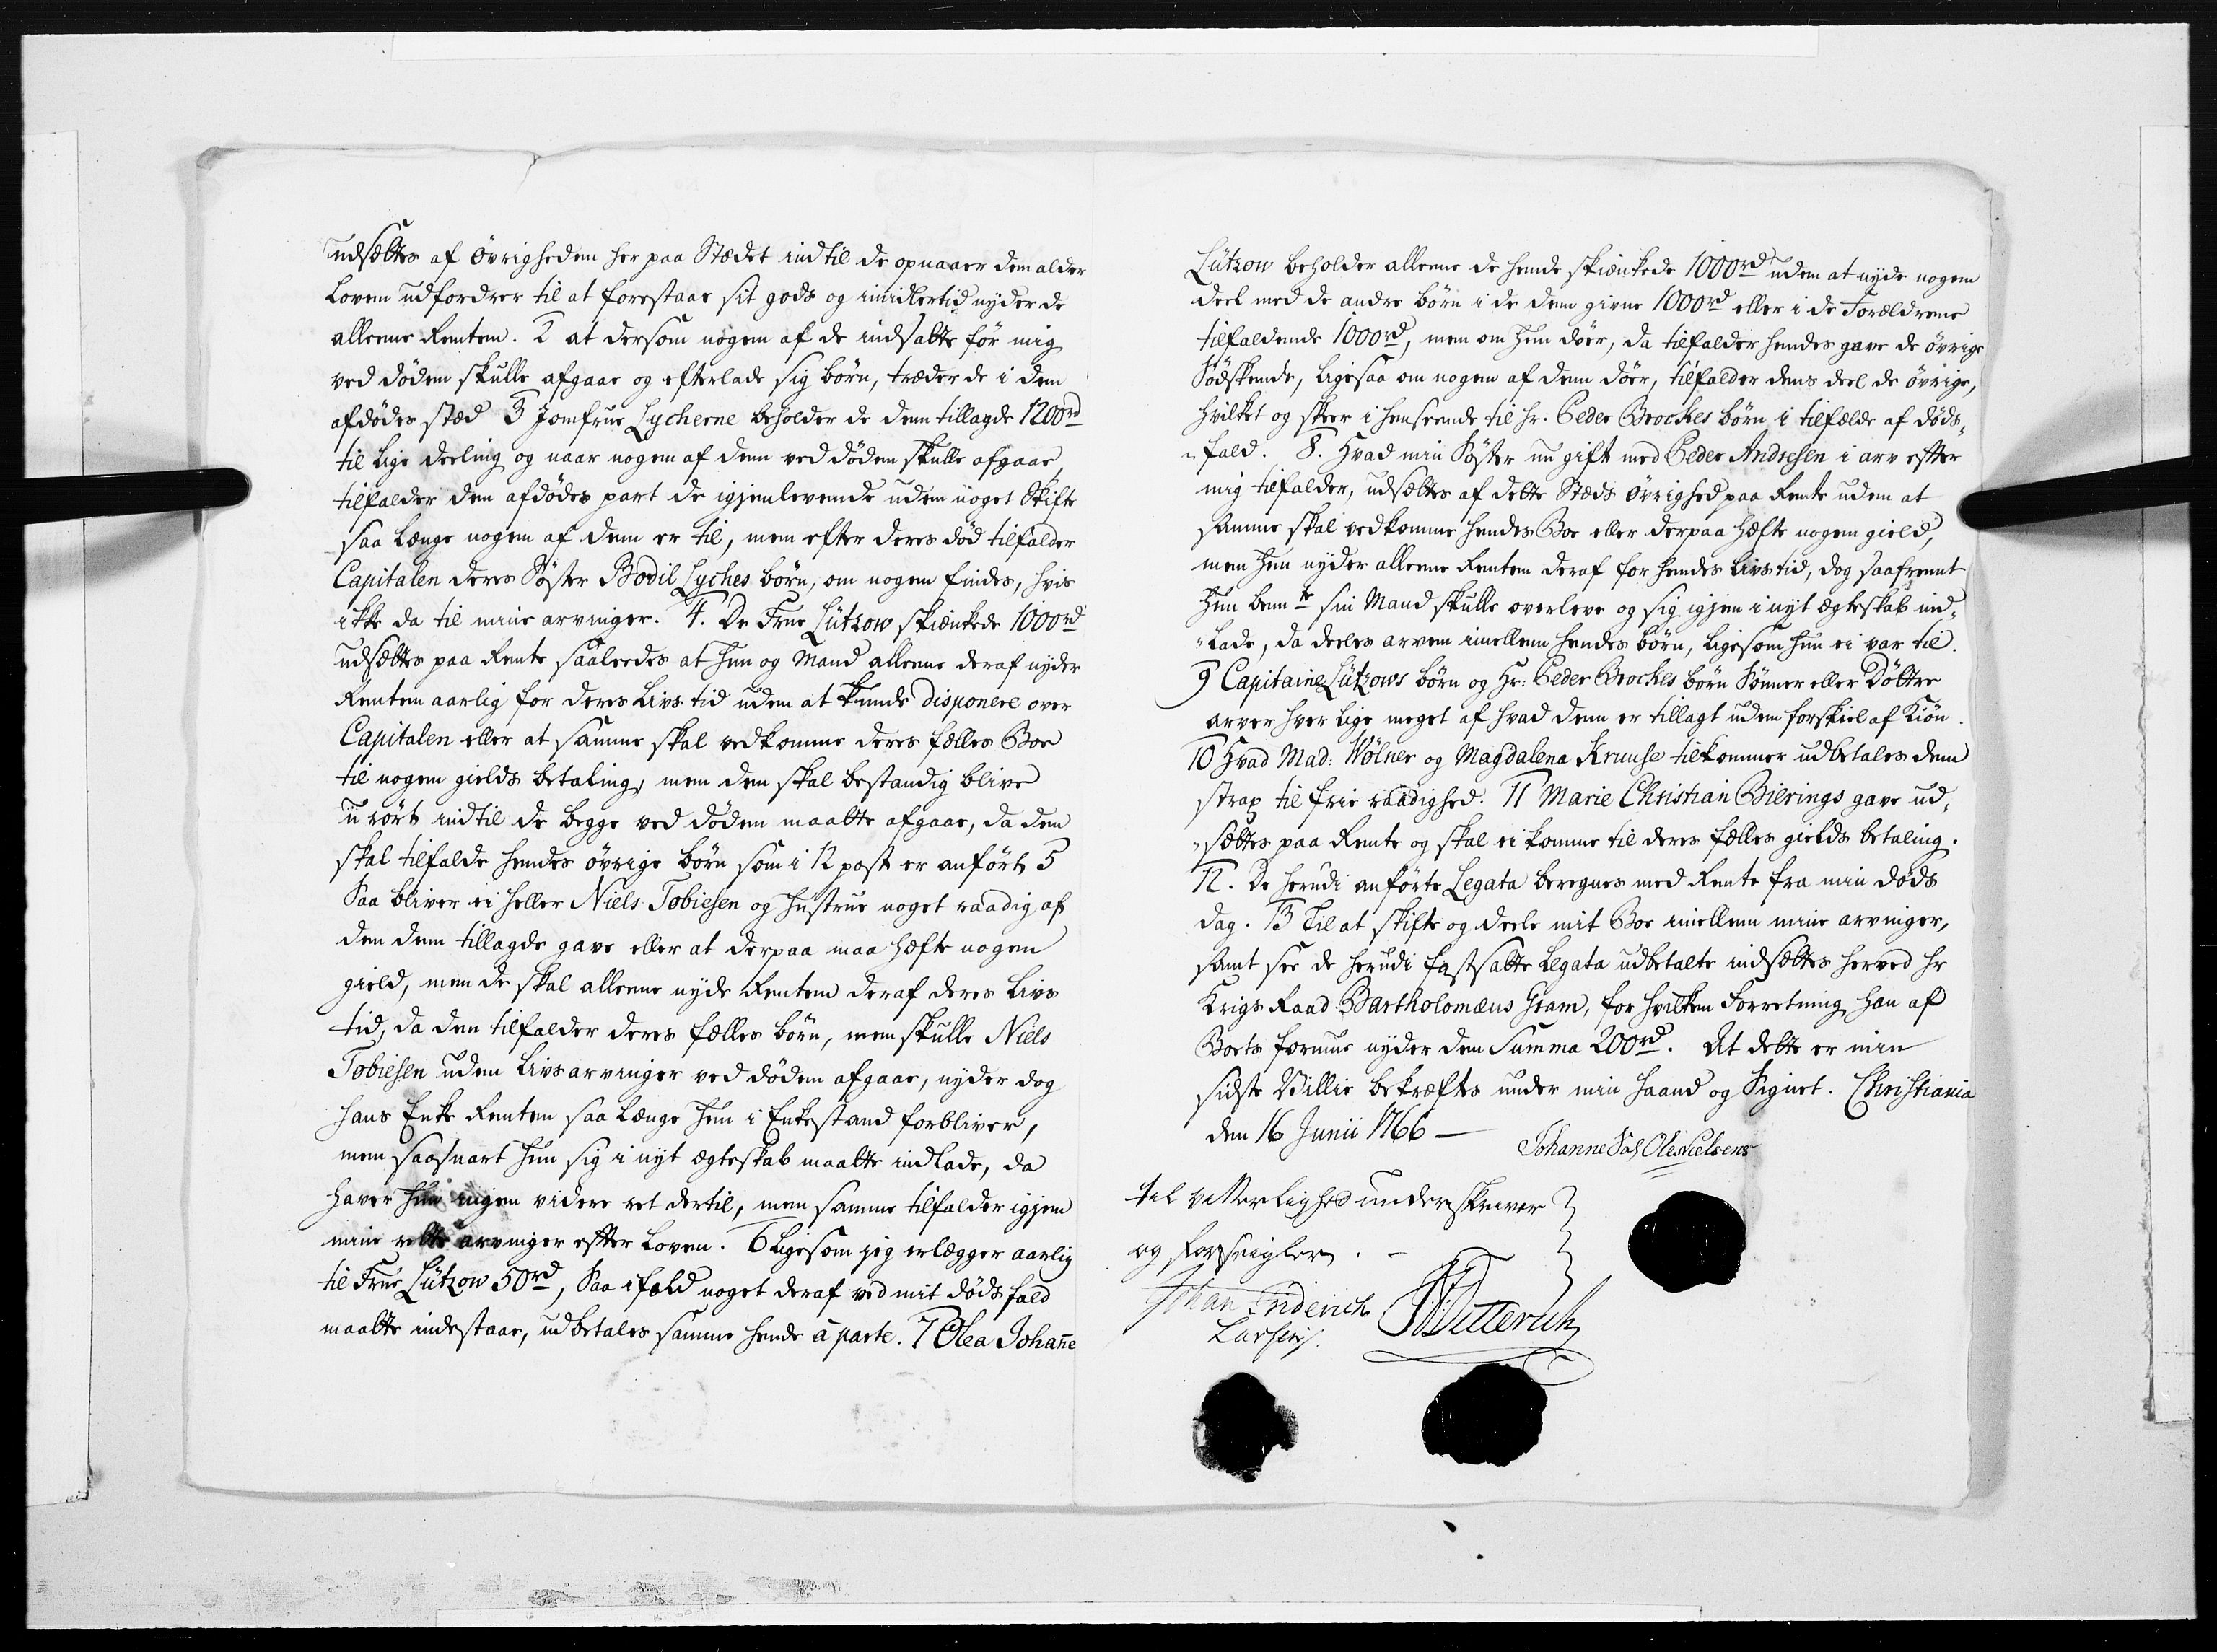 udsættes af Øvrigheden her paa Stædet indtil de opnaaer den alder
Loven udfordrer til at forestaae sit gods og imidlertid nyder de
alleene Renten. 2 at dersom nogen af de indsatte før mig
ved døden skulle afgaae og efterlade sig børn, træder de i den
afdødes stæd 3 Jomfrue Lycherne beholder de dem tillagde 1200rd
til lige deeling og naar nogen af dem ved døden skulle afgaae,
tilfalder den afdødes part de igjenlevende uden noget Skifte
saa længe nogen af dem er til, men efter deres død tilfalder
Capitalen deres Søster Bodil Lyches børn, om nogen findes, hvis
ikke da til mine arvinger. 4. De Frue Lützow skiænkede 1000rd
udsættes paa Rente saaleedes at hun og Mand alleene deraf nyder
Renten aarlig for deres Livs tid uden at kunde disponere over
Capitalen eller at samme skal vedkomme deres fælles Boe
til nogen gields betaling, men den skal bestandig blive
urørt indtil de begge ved døden maatte afgaae, da den
skal tilfalde hendes øvrige børn som i 12 post er anført 5
Saa bliver ei heller Niels Tobiesen og hustrue noget raadig af
den dem tillagde gave eller at derpaa maa hæfte nogen
gield, men de skal alleene nyde Renten deraf deres Livs
tid, da den tilfalder deres fælles børn, men skulle Niels
Tobiesen uden Livsarvinger ved døden afgaae, nyder dog
hans Enke Renten saa længe hun i Enkestand forbliver,
men saasnart hun sig i nyt ægteskab maatte indlade, da
haver hun ingen videre ret dertil, men samme tilfalder igjen
mine rette arvinger efter Loven. 6 Ligesom jeg erlægger aarlig
til Frue Lützow 50rd, Saa ifald noget deraf ved mit dødsfald
maatte indestaae, udbetales samme hende à parte. 7 Olea Johan̄e
Lützow beholder alleene de hende skiænkede 1000rd uden at nyde nogen
deel med de andre børn i de dem givne 1000rd eller i de Forældrene
tilfaldende 1000rd, men om hun döer, da tilfalder hendes gave de øvrige
Sødskende, ligesaa om nogen af dem döer, tilfalder dens deel de øvrige,
hvilket og skeer i henseende til hr. Peder Brockes børn i tilfælde af døds„
„fald. 8. Hvad min Søster nu gift med Peder Andresen i arv efter
mig tilfalder, udsættes af dette Stæds Øvrighed paa Rente uden at
samme skal vedkomme hendes Boe eller derpaa hæfte nogen gield,
men hun nyder alleene Renten deraf for hendes Livs tid, dog saafremt
hun bemte sin Mand skulle overleve og sig igjen i nyt ægteskab ind„
„lade, da deeles arven imellem hendes børn, ligesom hun ei var til.
9 Capitaine Lützows børn og Hr: Peder Brockes børn Sønner eller Døttre
arver hver lige meget af hvad dem er tillagt uden forskiel af Kiøn.
10 Hvad Mad: Wölner og Magdalena Kruuse tilkommer udbetales dem
strax til frie raadighed. 11 Marie Christian Bierings gave ud„
„sættes paa Rente og skal ei komme til deres fælles gields betaling.
12. De herudi anførte Legata beregnes med Rente fra min døds
dag. 13 Til at skifte og deele mit Boe imellem mine arvinger,
samt see de herudi fastsatte Legata udbetalte indsættes herved hr
Krigs Raad Bartholomæus Gram, for hvilken Forretning han af
Boets formue nyder den Summa 200rd. At dette er min
sidste Villie bekræftes under min Haand og Signet. Christiania
den 16 Junii 1766 —
Johanne Sal Ole Nielsens
til vitterlighed underskriver
og forseigler. –
Johan Friderich
Larsen